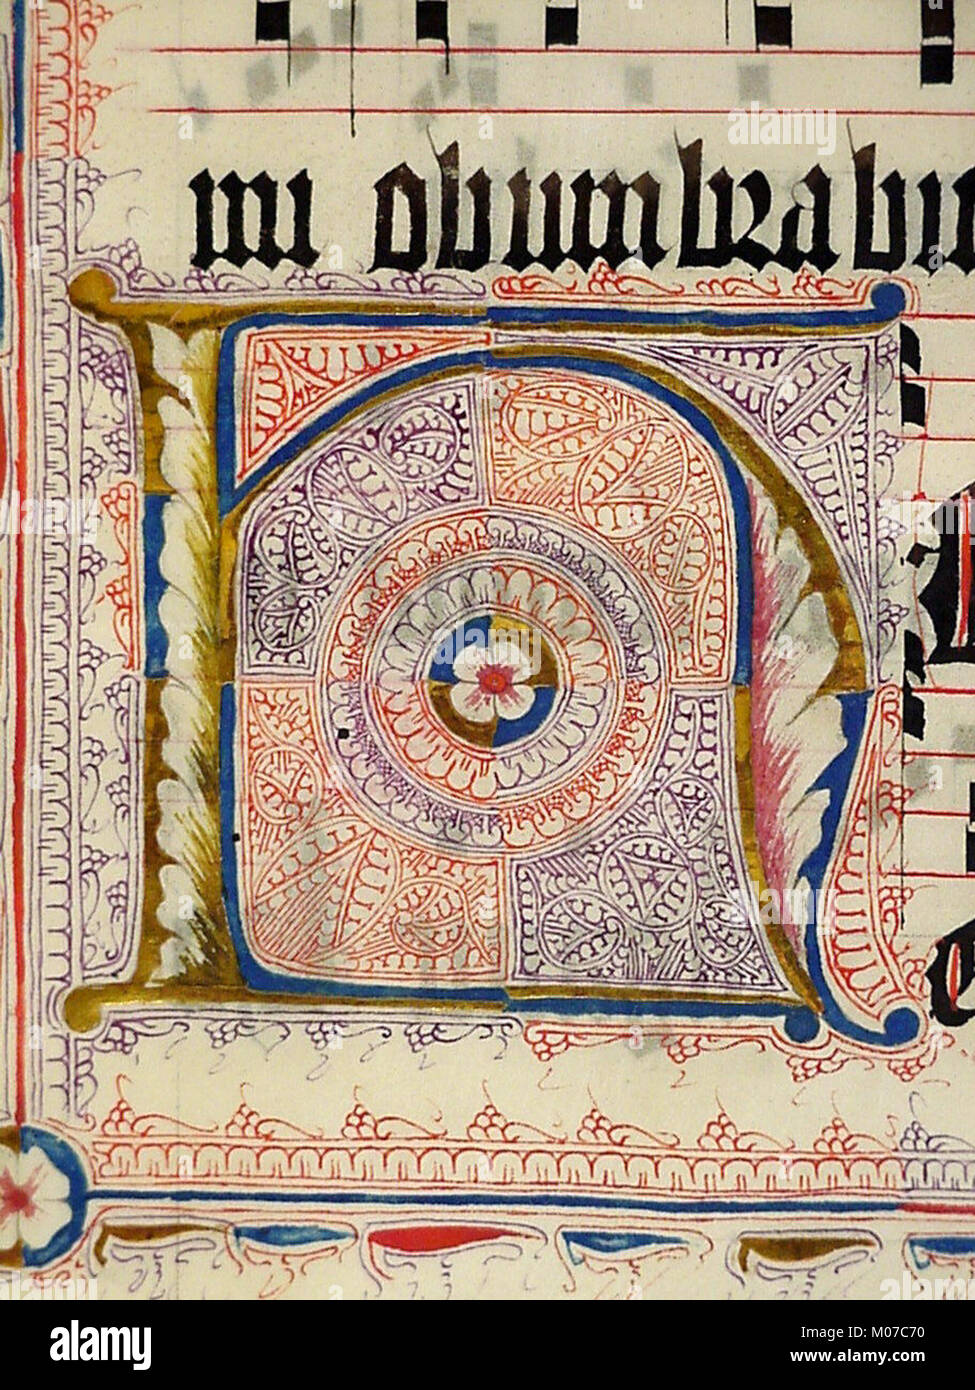 mi obumbrabi
alamy
Image ID: M07C70
www.alamy.com